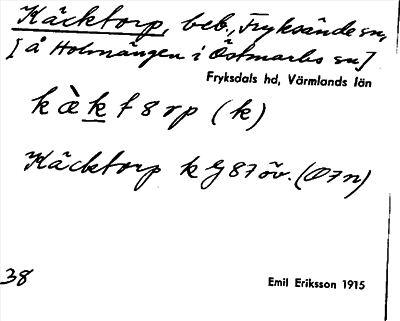 Käcktorp, beb., Fryksände sn,
[å Holmängen i Östmarks sn]
Fryksdals hd, Värmlands län
k (k)
Käcktorp k 87 öv. (O7n)
38
Emil Eriksson 1915